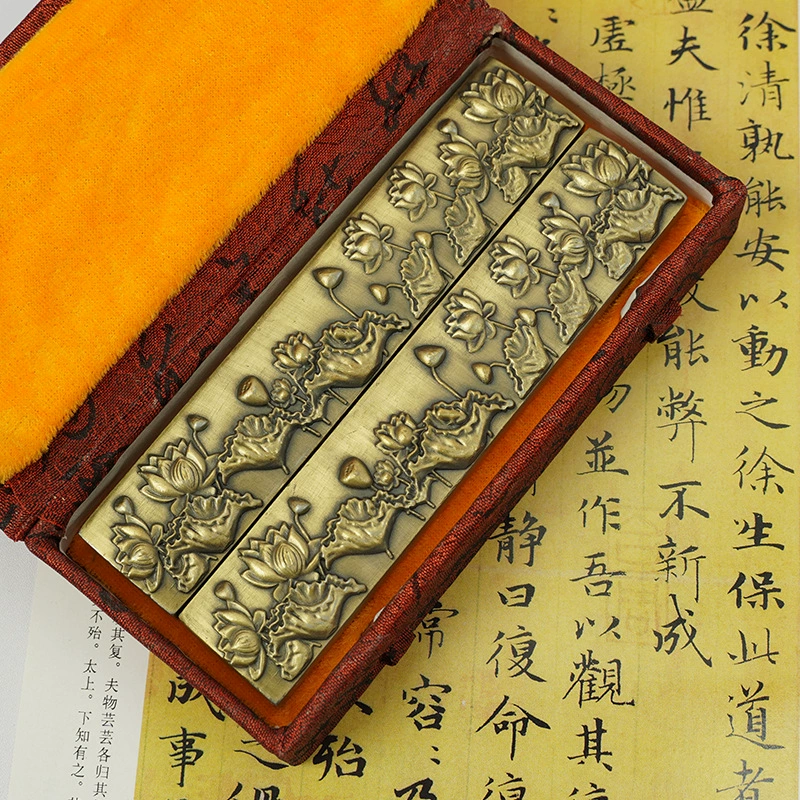 徐清孰能安以動之徐生保此道者
盈夫惟
能弊不新成
虛極
並作吾以觀其
靜曰復命復
常容
乃
殆
之
成事
其复。夫物芸芸各归其
不殆。太上。下知有之。